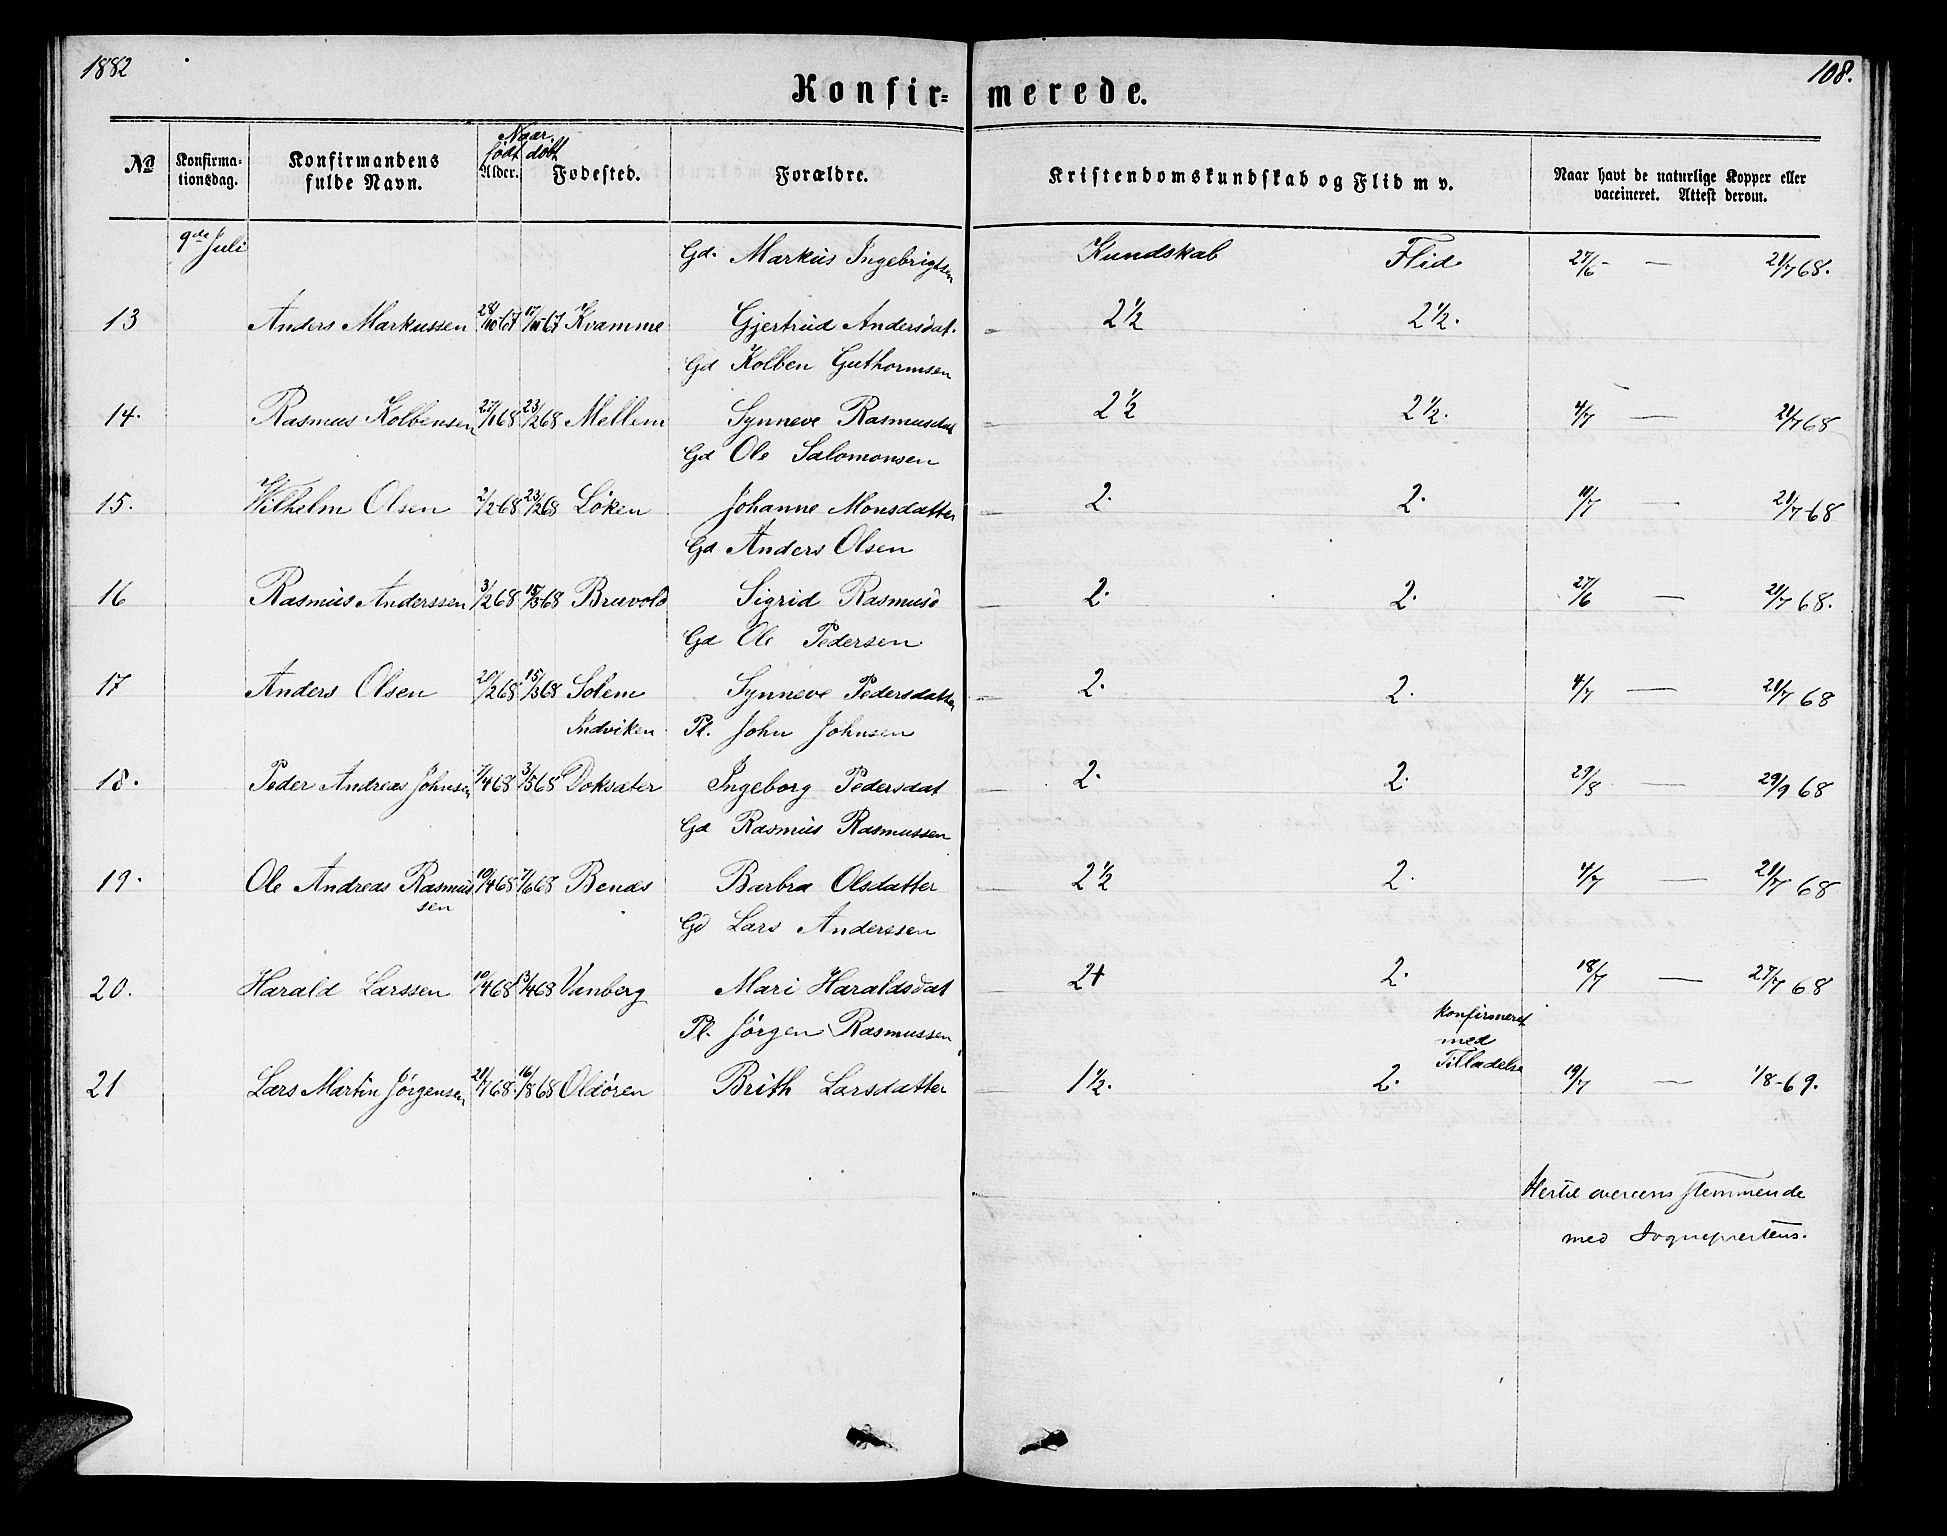 1882
108.
Konfir= merede.
No Konfirma-tionsdag. Konfirmandens fulde Navn. Naar født døbt Alder. Fødested. Forældre. Kristendomskundskab og Flid m v. Naar havt de naturlige Kopper eller vaccineret. Attest derom.
9de Juli Gd. Markus Ingebrigtsen Kundskab Flid 27/6 - — 21/7 68.
13 Anders Markussen 28/10 67 17/11 67 Kvamme Gjertrud Andersdat. 2 1/2 2 1/2.
Gd Kolben Guthormsen
14. Rasmus Kolbensen 27/1 68 23/2 68 Mellem Synneve Rasmusdat 2 1/2 2 1/2. 4/7 — 21/7 68
Gd Ole Salomonsen
15. Wilhelm Olsen 2/2 68 23/2 68 Løken Johanne Monsdatter 2. 2. 11/7 — 21/7-68
Gd Anders Olsen
16 Rasmus Anderssen 3/2 68 15/3 68 Bruvold Sigrid Rasmusd 2. 2. 27/6 — 21/7 68.
Gd Ole Pedersen
17 Anders Olsen 20/2 68 15/3 68 Solem Synneve Pedersdatter 2. 2. 4/7 — 21/7 68
Indviken Pl. John Johnsen
18. Peder Andreas Johnsen 7/4 68 3/5 68 Doksæter Ingeborg Pedersdat 2. 2. 29/8 — 29/9 68
Gd Rasmus Rasmussen
19. Ole Andreas Rasmus 10/4 68 7/6 68 Benæs Barbra Olsdatter 2 1/2 2. 4/7 — 21/7 68
sen
Gd Lars Anderssen
20. Harald Larssen 10/4 68 13/4 68 Vanberg Mari Haraldsdat 2+ 2. 18/7 — 27/7 68
Pl. Jørgen Rasmussen
konfirmeret
med
Tilladelse
21 Lars Martin Jørgensen 21/7 68. 16/8 68 Oldøren Brith Larsdatter 1 1/2. 2. 19/7 — 1/8-69.
Hertil overeens stemmende
med Sogneprestens.